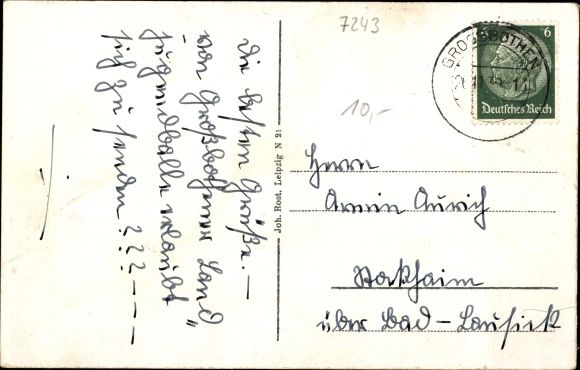 7243
6
GROSSBOTHEN
Deutsches Reich
10,-
Die besten Grüße. —
von Großbothener Land
jugendballe erlaubt
sich zu senden ? ? ? — — —
Joh. Rost, Leipzig N 21
Herrn
Armin Aurich
Stockheim
über Bad-Lausick